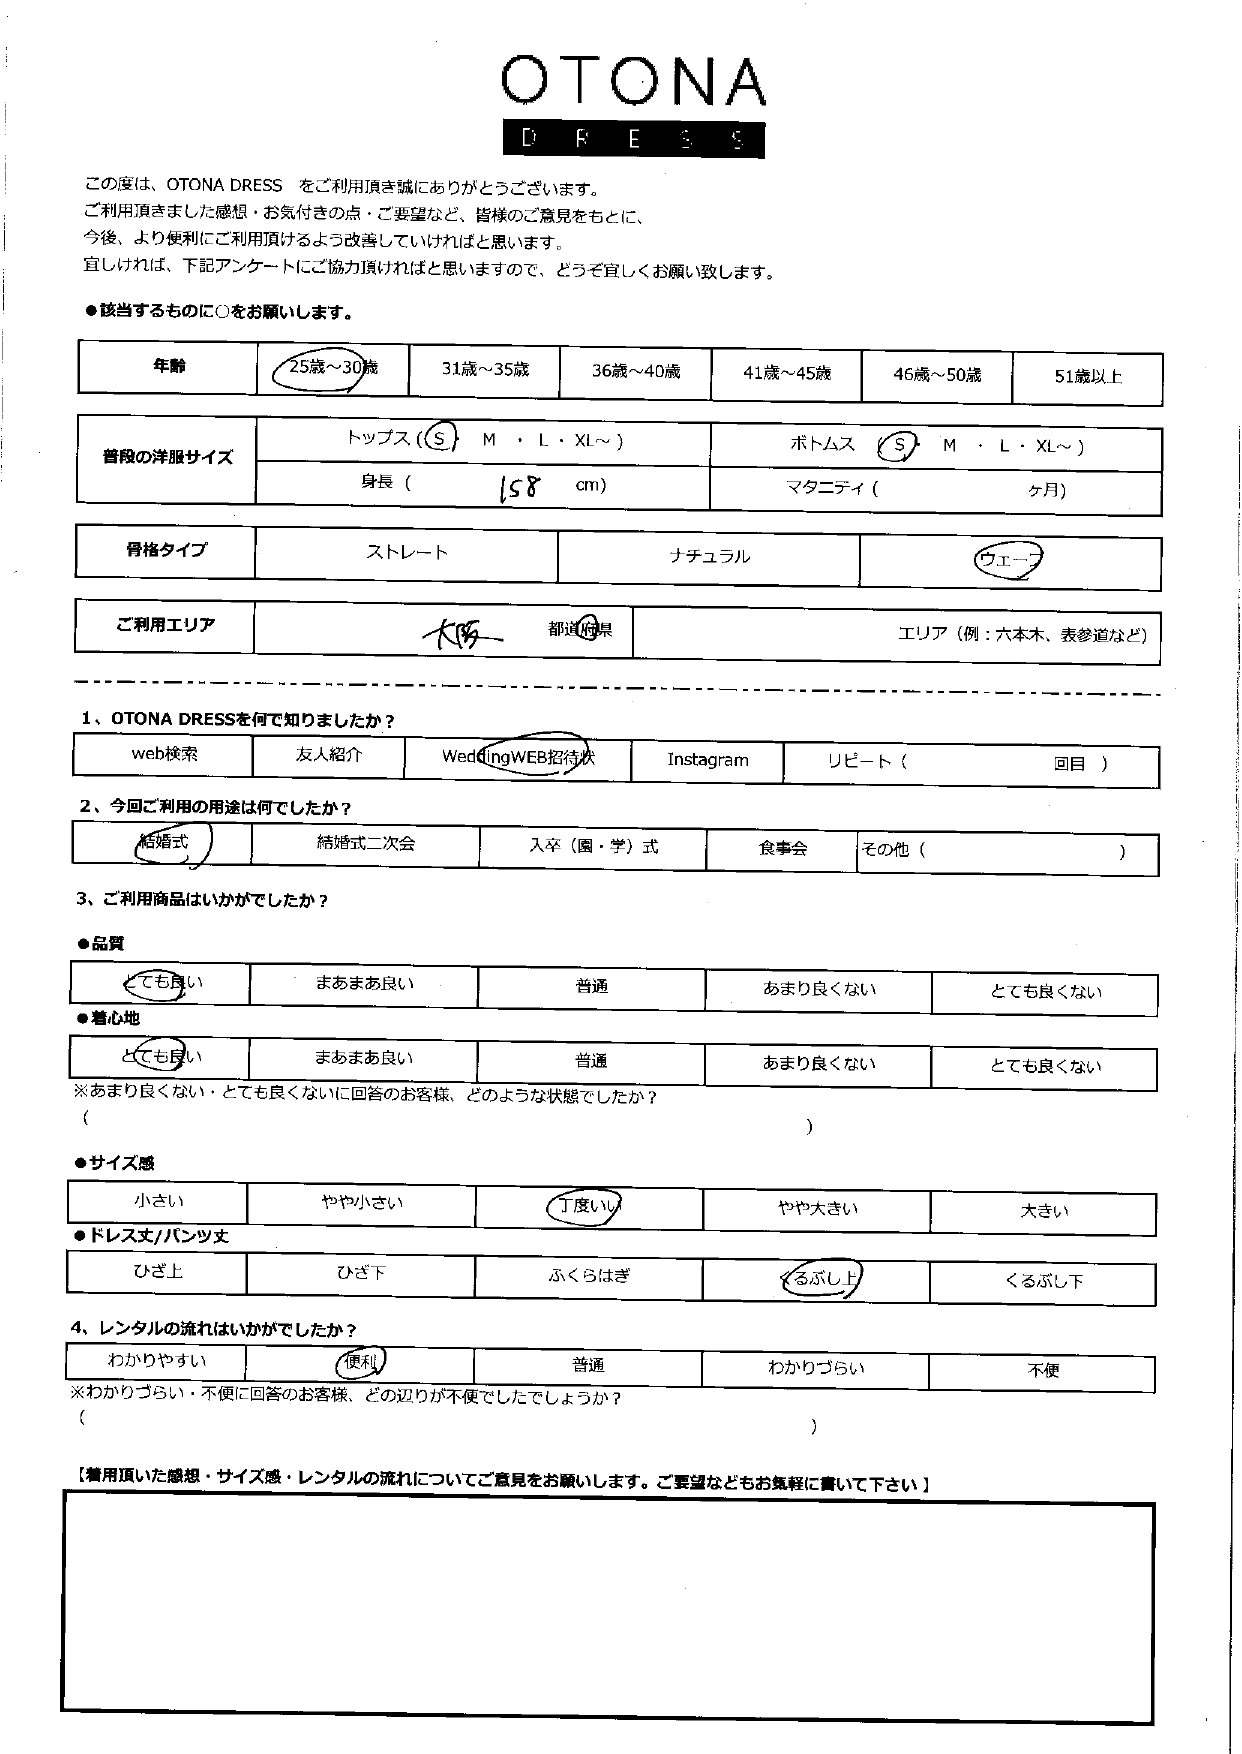 OTONA
DRESS
この度は、OTONA DRESS をご利用頂き誠にありがとうございます。
ご利用頂きました感想・お気付きの点・ご要望など、皆様のご意見をもとに、
今後、より便利にご利用頂けるよう改善していければと思います。
宜しければ、下記アンケートにご協力頂ければと思いますので、どうぞ宜しくお願い致します。
●該当するものに○をお願いします。
年齢 25歳～30歳 31歳～35歳 36歳～40歳 41歳～45歳 46歳～50歳 51歳以上
普段の洋服サイズ トップス (S・ M ・ L ・ XL～ ) ボトムス (S・ M ・ L ・ XL～ )
身長 ( 158 cm) マタニティ ( ケ月)
骨格タイプ ストレート ナチュラル ウェーブ
ご利用エリア 大阪 都道府県 エリア（例：六本木、表参道など）
1、OTONA DRESSを何で知りましたか？
web検索 友人紹介 WeddingWEB招待状 Instagram リピート（ 回目 ）
2、今回ご利用の用途は何でしたか？
結婚式 結婚式二次会 入卒（園・学）式 食事会 その他（ ）
3、ご利用商品はいかがでしたか？
●品質
とても良い まあまあ良い 普通 あまり良くない とても良くない
●着心地
とても良い まあまあ良い 普通 あまり良くない とても良くない
※あまり良くない・とても良くないに回答のお客様、どのような状態でしたか？
( )
●サイズ感
小さい やや小さい 丁度いい やや大きい 大きい
●ドレス丈/パンツ丈
ひざ上 ひざ下 ふくらはぎ くるぶし上 くるぶし下
4、レンタルの流れはいかがでしたか？
わかりやすい 便利 普通 わかりづらい 不便
※わかりづらい・不便に回答のお客様、どの辺りが不便でしたでしょうか？
( )
【着用頂いた感想・サイズ感・レンタルの流れについてご意見をお願いします。ご要望などもお気軽に書いて下さい】